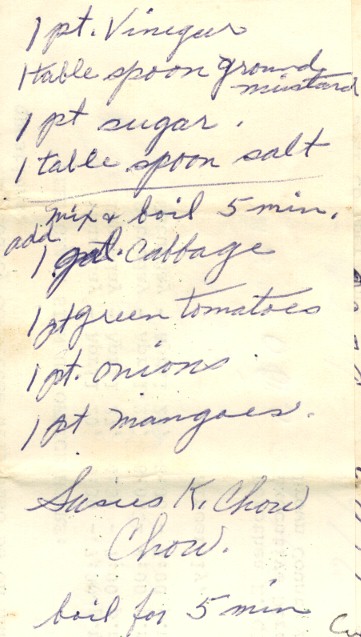 1 pt. Vinegar
1 table spoon ground
mustard
1 pt sugar.
1 table spoon salt
mix & boil 5 min.
add
1 gal. Cabbage
1 pt green tomatoes
1 pt. onions
1 pt mangoes.
Susies K. Chow
Chow.
boil for 5 min